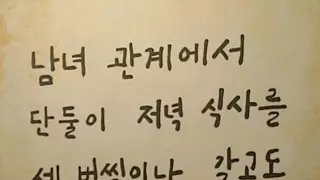 남녀 관계에서
단둘이 저녁 식사를
세 번씩이나 갖고도